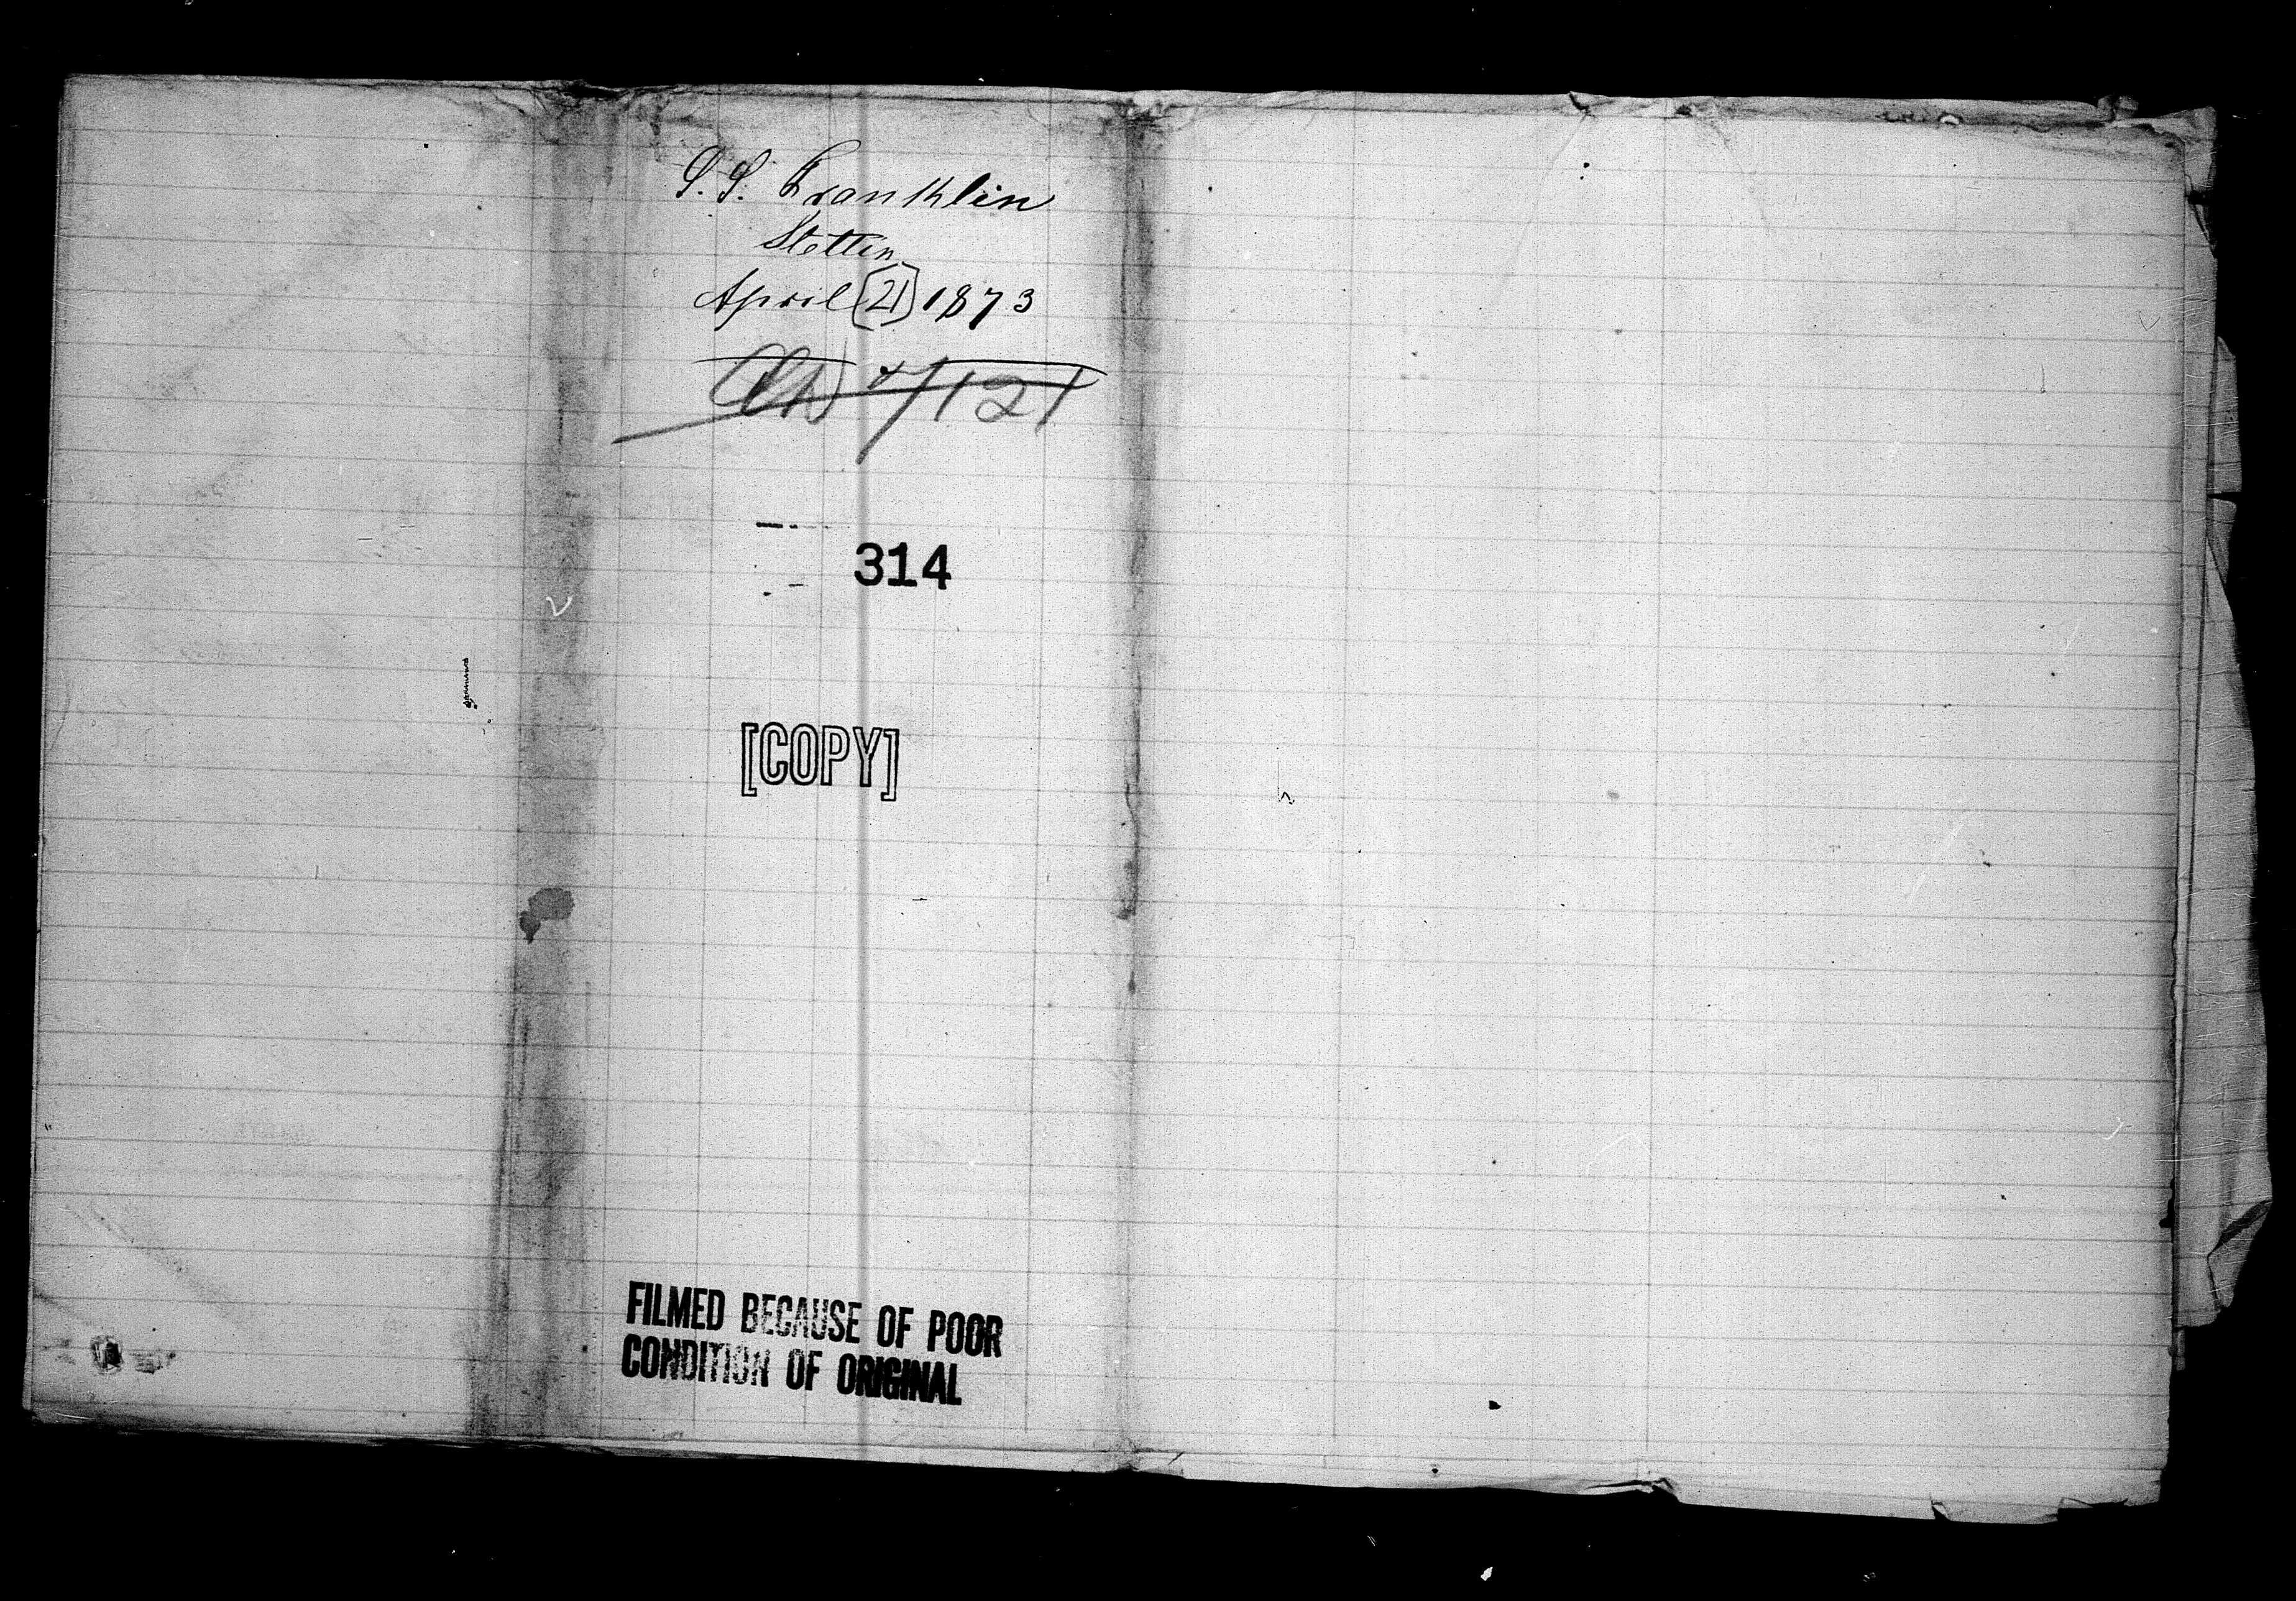 S.S. Franklin
Stettin
April [21] 1873
4/121
314
[COPY]
FILMED BECAUSE OF POOR
CONDITION OF ORIGINAL